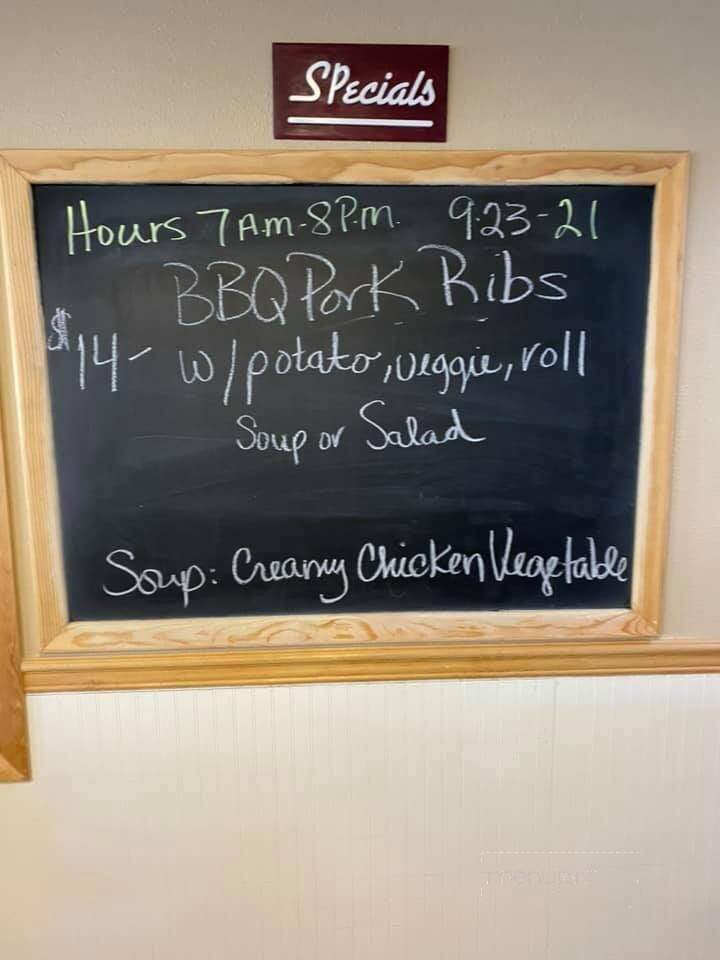 SPecials
Hours 7 Am-8 P.m. 9-23-21
BBQ Pork Ribs
$14- w/potato, veggie, roll
Soup or Salad
Soup: Creamy Chicken Vegetable